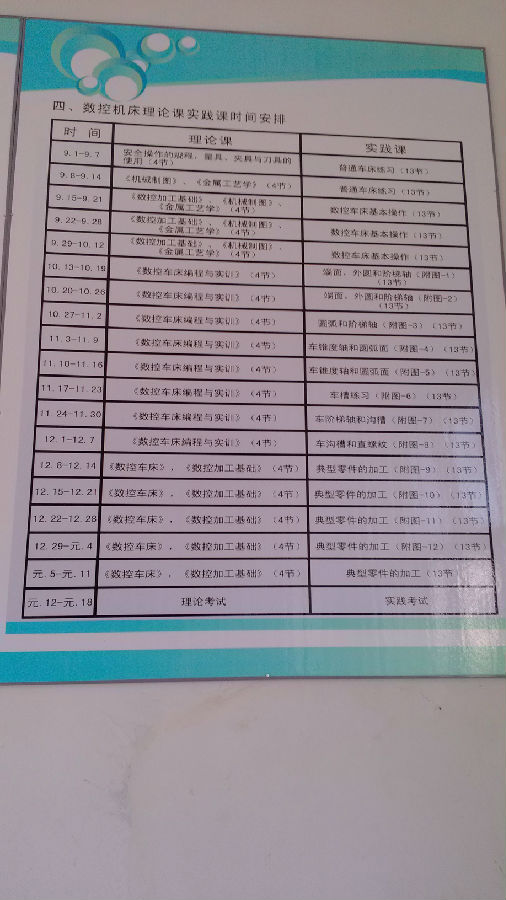 四、数控机床理论课实践课时间安排
时 间 理论课 实践课
9.1-9.7 安全操作的规程，量具、夹具与刀具的使用（4节） 普通车床练习（13节）
9.8-9.14 《机械制图》、《金属工艺学》（4节） 普通车床练习（13节）
9.15-9.21 《数控加工基础》、《机械制图》、《金属工艺学》（4节） 数控车床基本操作（13节）
9.22-9.28 《数控加工基础》、《机械制图》、《金属工艺学》（4节） 数控车床基本操作（13节）
9.29-10.12 《数控加工基础》、《机械制图》、《金属工艺学》（4节） 数控车床基本操作（13节）
10.13-10.19 《数控车床编程与实训》（4节） 端面、外圆和阶梯轴（附图-1）（13节）
10.20-10.26 《数控车床编程与实训》（4节） 端面、外圆和阶梯轴（附图-2）（13节）
10.27-11.2 《数控车床编程与实训》（4节） 圆弧和阶梯轴（附图-3）（13节）
11.3-11.9 《数控车床编程与实训》（4节） 车锥度轴和圆弧面（附图-4）（13节）
11.10-11.16 《数控车床编程与实训》（4节） 车锥度轴和圆弧面（附图-5）（13节）
11.17-11.23 《数控车床编程与实训》（4节） 车槽练习（附图-6）（13节）
11.24-11.30 《数控车床编程与实训》（4节） 车阶梯轴和沟槽（附图-7）（13节）
12.1-12.7 《数控车床编程与实训》（4节） 车沟槽和直螺纹（附图-8）（13节）
12.8-12.14 《数控车床》，《数控加工基础》（4节） 典型零件的加工（附图-9）（13节）
12.15-12.21 《数控车床》，《数控加工基础》（4节） 典型零件的加工（附图-10）（13节）
12.22-12.28 《数控车床》，《数控加工基础》（4节） 典型零件的加工（附图-11）（13节）
12.29-元.4 《数控车床》，《数控加工基础》（4节） 典型零件的加工（附图-12）（13节）
元.5-元.11 《数控车床》，《数控加工基础》（4节） 典型零件的加工（13节）
元.12-元.18 理论考试 实践考试